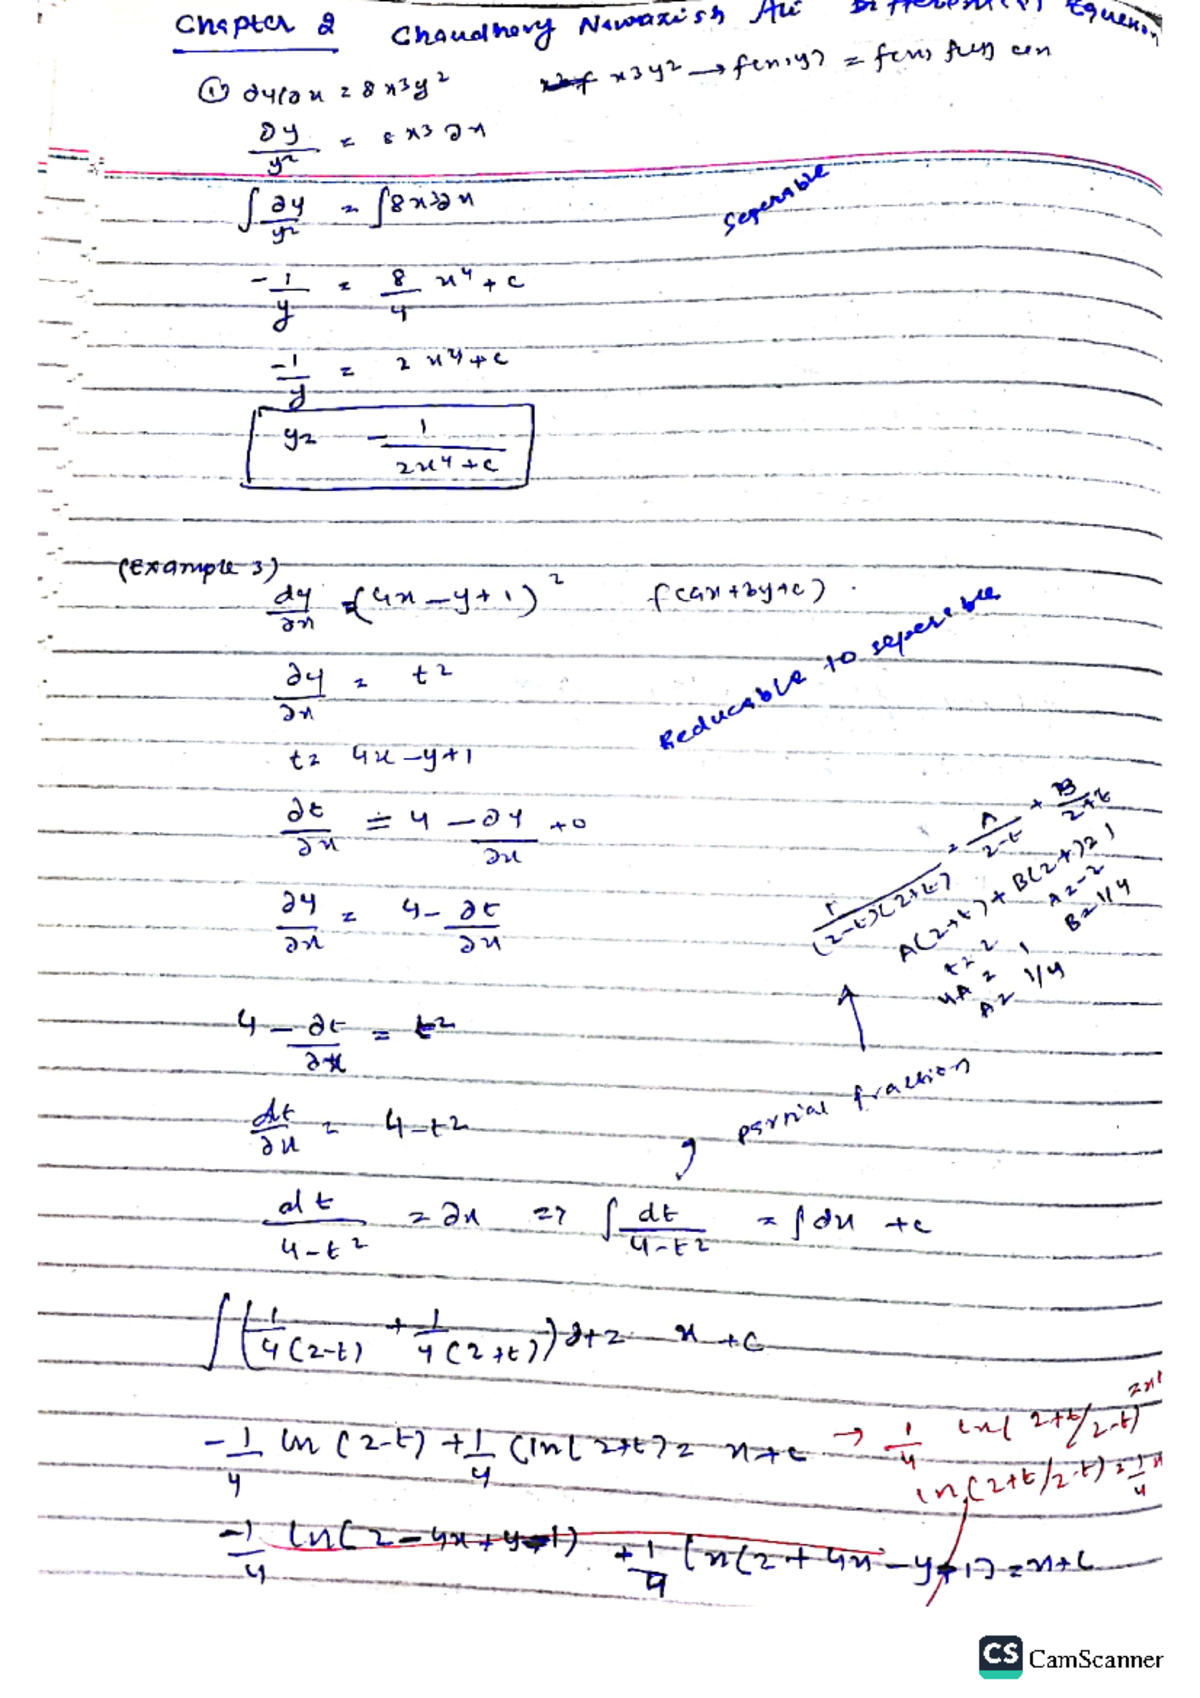 Chapter 2 Chaudhary Nawazish Ali Differential Equation
① ∂y/∂x = 8x3y²
x3y² → f(x,y) = f(x) f(y)
∂y/y² = 8x3 ∂x
∫ ∂y/y² = ∫8x3∂x
Seperable
-1/y = 8/4 x⁴ + c
-1/y = 2x⁴ + c
y = -1/(2x⁴ + c)
(Example 3)
dy/∂x = (4x - y + 1)²
f(ax+by+c).
Reducable to seperable
∂y/∂x = t2
t = 4x - y + 1
∂t/∂x = 4 - ∂y/∂x + 0
∂y/∂x = 4 - ∂t/∂x
1/((2-t)(2+t)) = A/(2-t) + B/(2+t)
A(2+t) + B(2-t) = 1
t = 2 A = -2
4A = 1 B = 1/4
A = 1/4
4 - ∂t/∂x = t²
partial fraction
dt/∂x = 4 - t2
dt/(4-t²) = ∂x => ∫ dt/(4-t2) = ∫dx + c
∫(1/4(2-t) + 1/4(2+t)) ∂t = x + c
-1/4 ln(2-t) + 1/4 (ln(2+t) = x + c → 1/4 ln(2+t/2-t)
ln(2+t/2-t) = 1/4 x
-1/4 ln(2 - 4x + y - 1) + 1/4 ln(2 + 4x - y + 1) = x + c
CS CamScanner